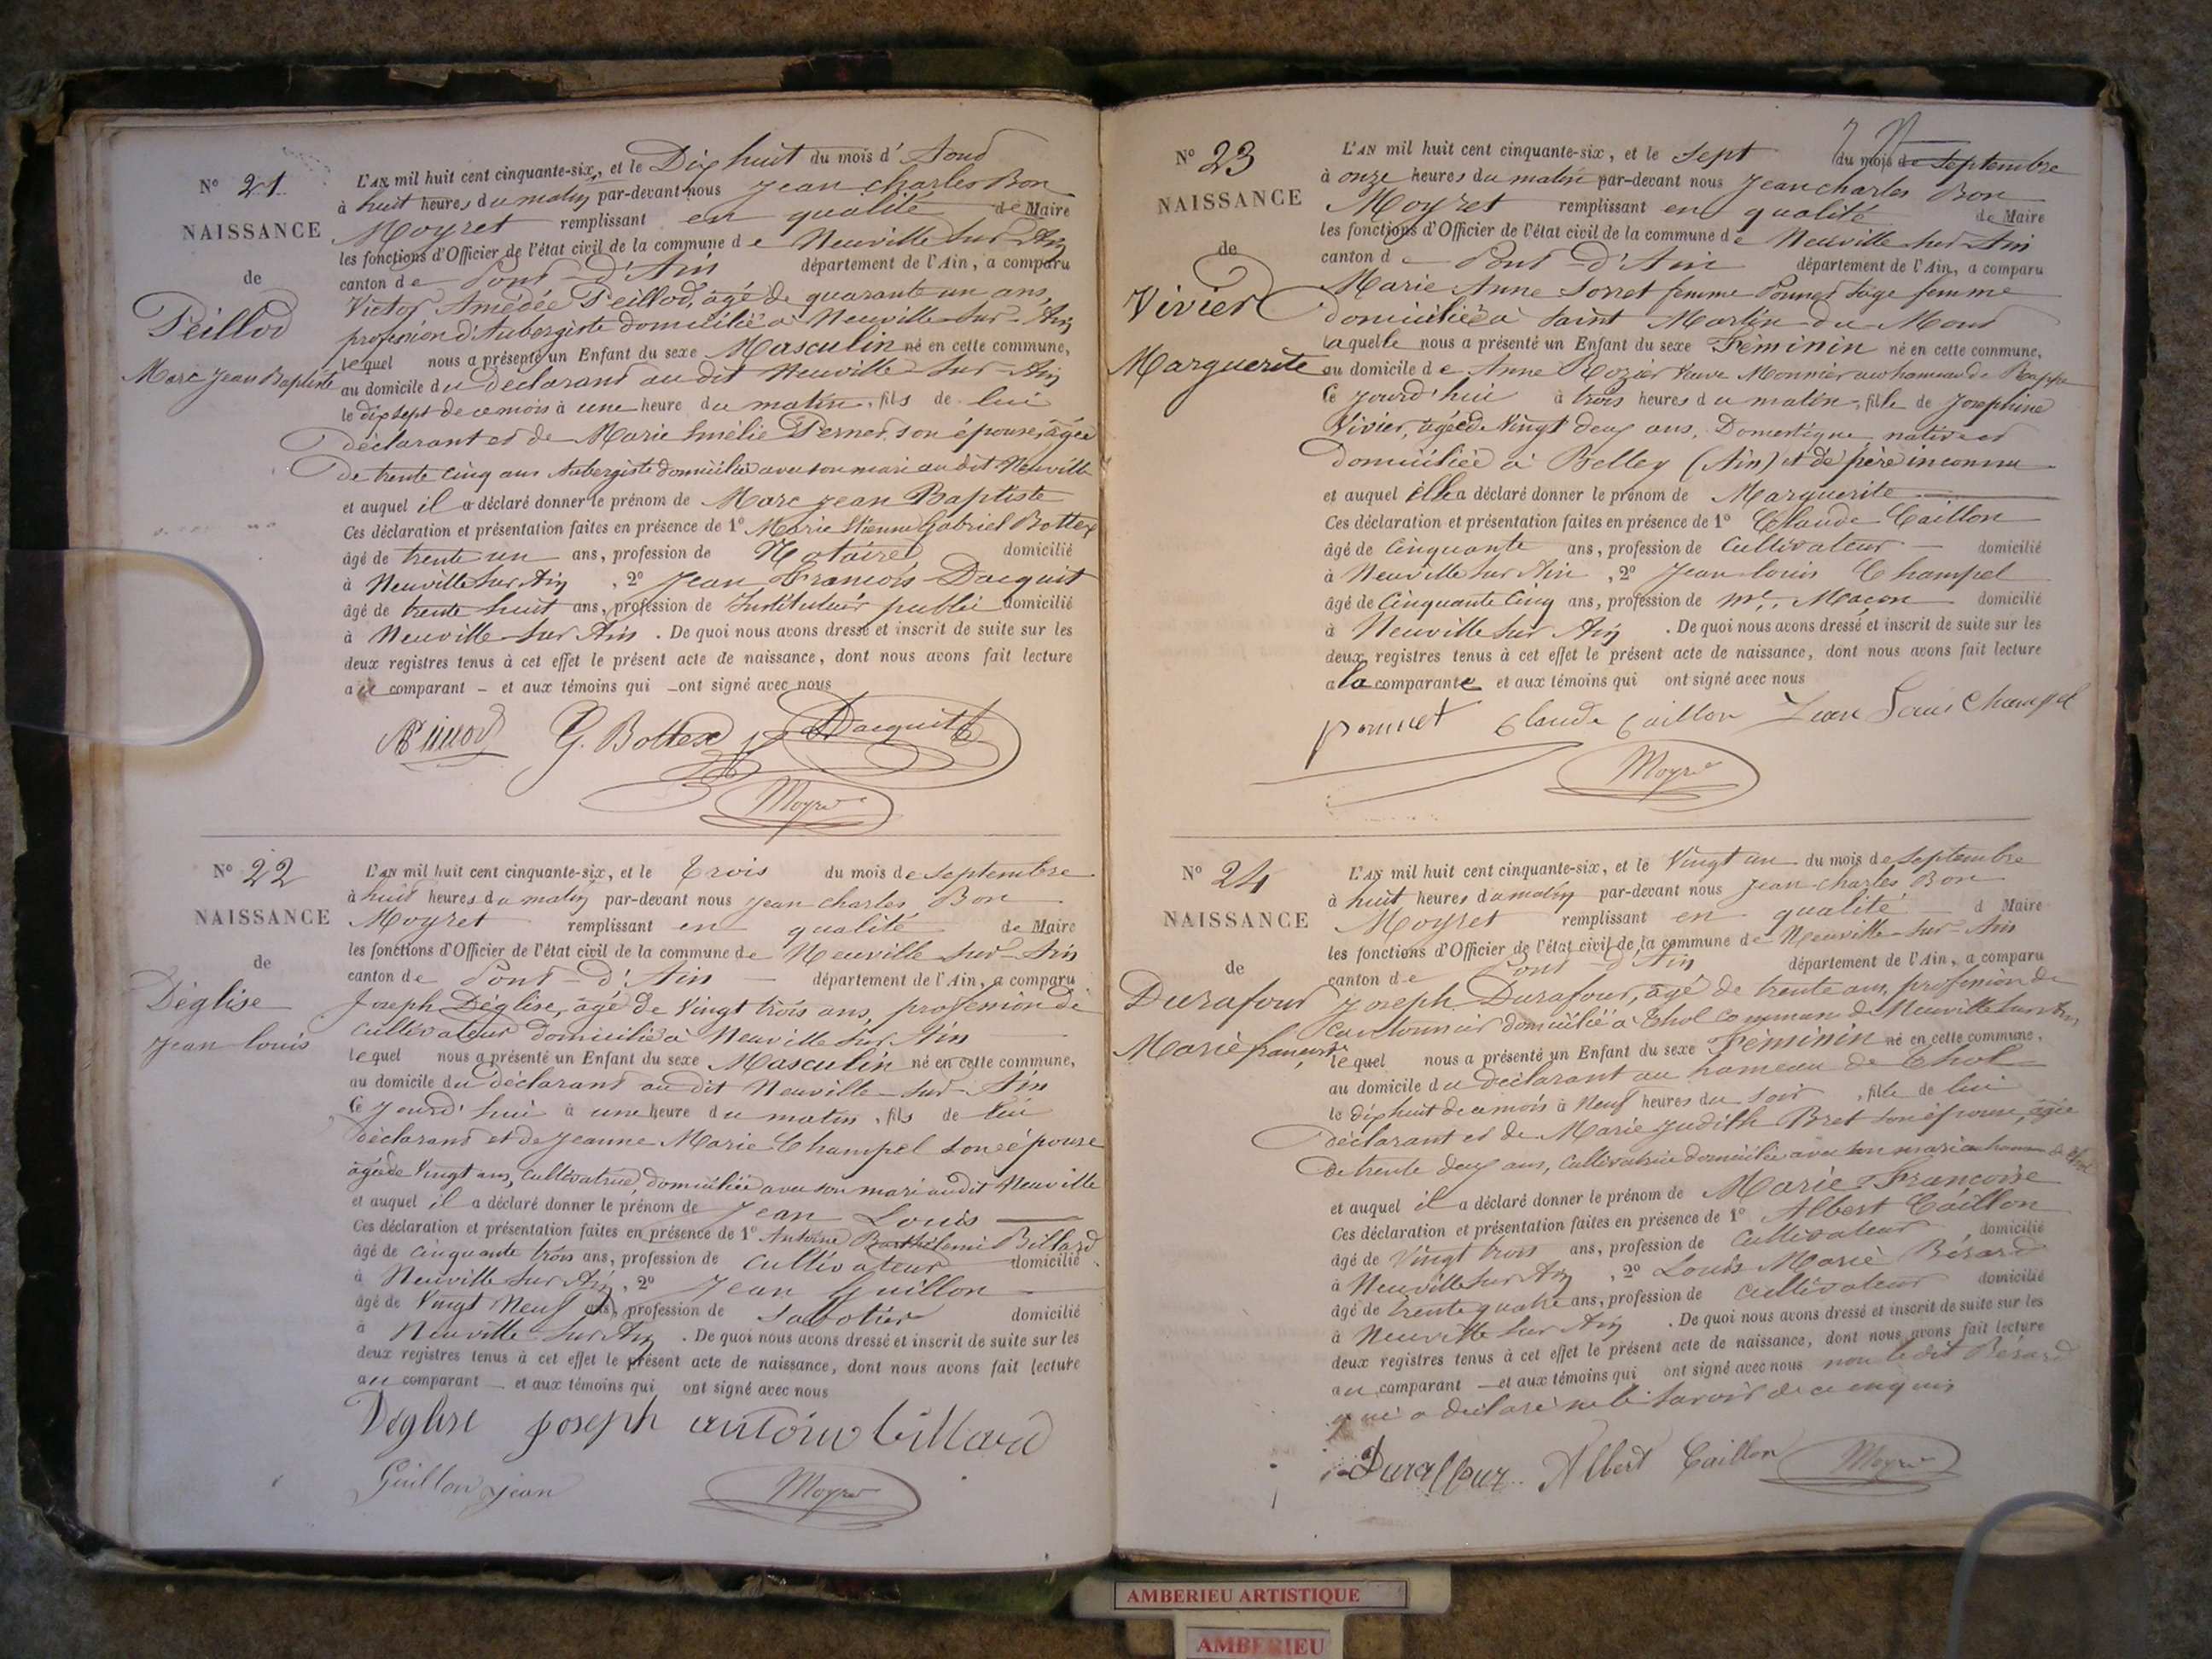 N° 21
NAISSANCE
de
Peillod
Marc Jean Baptiste
L'AN mil huit cent cinquante-six, et le Dix huit du mois d' Aout
à huit heures du matin par-devant nous Jean Charles Bon
Moyret remplissant en qualité de Maire
les fonctions d'Officier de l'état civil de la commune de Neuville sur Ain
canton de Pont-d'Ain département de l'Ain, a comparu
Victor Amédée Peillod, âgé de quarante un ans,
profession d'Aubergiste domicilié à Neuville-sur-Ain
lequel nous a présenté un Enfant du sexe Masculin né en cette commune,
au domicile du Déclarant au dit Neuville-sur-Ain
le dix sept de ce mois à une heure du matin, fils de lui
déclarant et de Marie Emélie Perner son épouse, âgée
de trente cinq ans Aubergiste domiciliée avec son mari au dit Neuville
et auquel il a déclaré donner le prénom de Marc Jean Baptiste
Ces déclaration et présentation faites en présence de 1° Marie Etienne Gabriel Bottex
âgé de trente un ans, profession de Notaire domicilié
à Neuville sur Ain, 2° Jean François Dacquit
âgé de trente huit ans, profession de Instituteur public domicilié
à Neuville-sur Ain. De quoi nous avons dressé et inscrit de suite sur les
deux registres tenus à cet effet le présent acte de naissance, dont nous avons fait lecture
au comparant - et aux témoins qui -ont signé avec nous
G. Bottex Dacquit
Moyret
N° 22
NAISSANCE
de
Déglise
Jean Louis
L'AN mil huit cent cinquante-six, et le Trois du mois de Septembre
à huit heures du matin par-devant nous Jean Charles Bon
Moyret remplissant en qualité de Maire
les fonctions d'Officier de l'état civil de la commune de Neuville sur-Ain
canton de Pont-d'Ain département de l'Ain, a comparu
Joseph Déglise, âgé de Vingt trois ans, profession de
cultivateur domicilié à Neuville sur Ain
lequel nous a présenté un Enfant du sexe Masculin né en cette commune,
au domicile du déclarant au dit Neuville-sur-Ain
Ce Jourd'hui à une heure du matin, fils de lui
déclarant et de Jeanne Marie Champel son épouse
âgée de Vingt ans, cultivatrice, domiciliée avec son mari au dit Neuville
et auquel il a déclaré donner le prénom de Jean Louis
Ces déclaration et présentation faites en présence de 1° Antoine Barthélemi Billard
âgé de cinquante trois ans, profession de cultivateur domicilié
à Neuville sur Ain, 2° Jean Guillon
âgé de Vingt Neuf ans, profession de sabotier domicilié
à Neuville-sur Ain. De quoi nous avons dressé et inscrit de suite sur les
deux registres tenus à cet effet le présent acte de naissance, dont nous avons fait lecture
au comparant - et aux témoins qui ont signé avec nous
Déglise Joseph antoine billard
Guillon jean Moyret
N° 23
NAISSANCE
de
Vivier
Marguerite
L'AN mil huit cent cinquante-six, et le sept du mois de Septembre
à onze heures du matin par-devant nous Jean Charles Bon
Moyret remplissant en qualité de Maire
les fonctions d'Officier de l'état civil de la commune de Neuville sur-Ain
canton de Pont-d'Ain département de l'Ain, a comparu
Marie Anne Sorret femme Ponnet Sage femme
domiciliée à Saint Martin du Mont
laquelle nous a présenté un Enfant du sexe Féminin né en cette commune,
au domicile de Anne Rozier Veuve Monnier au hameau de
Ce Jourd'hui à trois heures du matin, fille de Joséphine
Vivier, âgée de Vingt deux ans, Domestique, native et
domiciliée à Belley (Ain) et de père inconnu
et auquel Elle a déclaré donner le prénom de Marguerite
Ces déclaration et présentation faites en présence de 1° Claude Caillon
âgé de Cinquante ans, profession de Cultivateur - domicilié
à Neuville sur Ain, 2° Jean Louis Champel
âgé de Cinquante Cinq ans, profession de Me. Maçon domicilié
à Neuville sur Ain. De quoi nous avons dressé et inscrit de suite sur les
deux registres tenus à cet effet le présent acte de naissance, dont nous avons fait lecture
a la comparante et aux témoins qui ont signé avec nous
ponnet Claude Caillon Jean Louis Champel
Moyret
N° 24
NAISSANCE
de
Durafour
Marie françoise
L'AN mil huit cent cinquante-six, et le Vingt un du mois de Septembre
à huit heures du matin par-devant nous Jean-Charles Bon
Moyret remplissant en qualité d Maire
les fonctions d'Officier de l'état civil de la commune de Neuville-sur-Ain
canton de Pont-d'Ain département de l'Ain, a comparu
Joseph Durafour, âgé de trente ans, profession de
Cantonnier domicilié à Thol Commune de Neuville sur Ain
lequel nous a présenté un Enfant du sexe Féminin né en cette commune,
au domicile du déclarant au hameau de Thol
le dix huit de ce mois à Neuf heures du soir, fille de lui
déclarant et de Marie Judith Bret son épouse, âgée
de trente deux ans, Cultivatrice domiciliée avec son mari au hameau de Thol
et auquel il a déclaré donner le prénom de Marie Françoise
Ces déclaration et présentation faites en présence de 1° Albert Caillon
âgé de Vingt trois ans, profession de cultivateur domicilié
à Neuville sur Ain, 2° Louis Marie Bérard
âgé de trente quatre ans, profession de cultivateur domicilié
à Neuville sur Ain. De quoi nous avons dressé et inscrit de suite sur les
deux registres tenus à cet effet le présent acte de naissance, dont nous avons fait lecture
au comparant - et aux témoins qui ont signé avec nous non le dit Bérard
qui a déclaré ne le savoir de ce enquis
Durafour Albert Caillon Moyret
AMBERIEU ARTISTIQUE
AMBERIEU